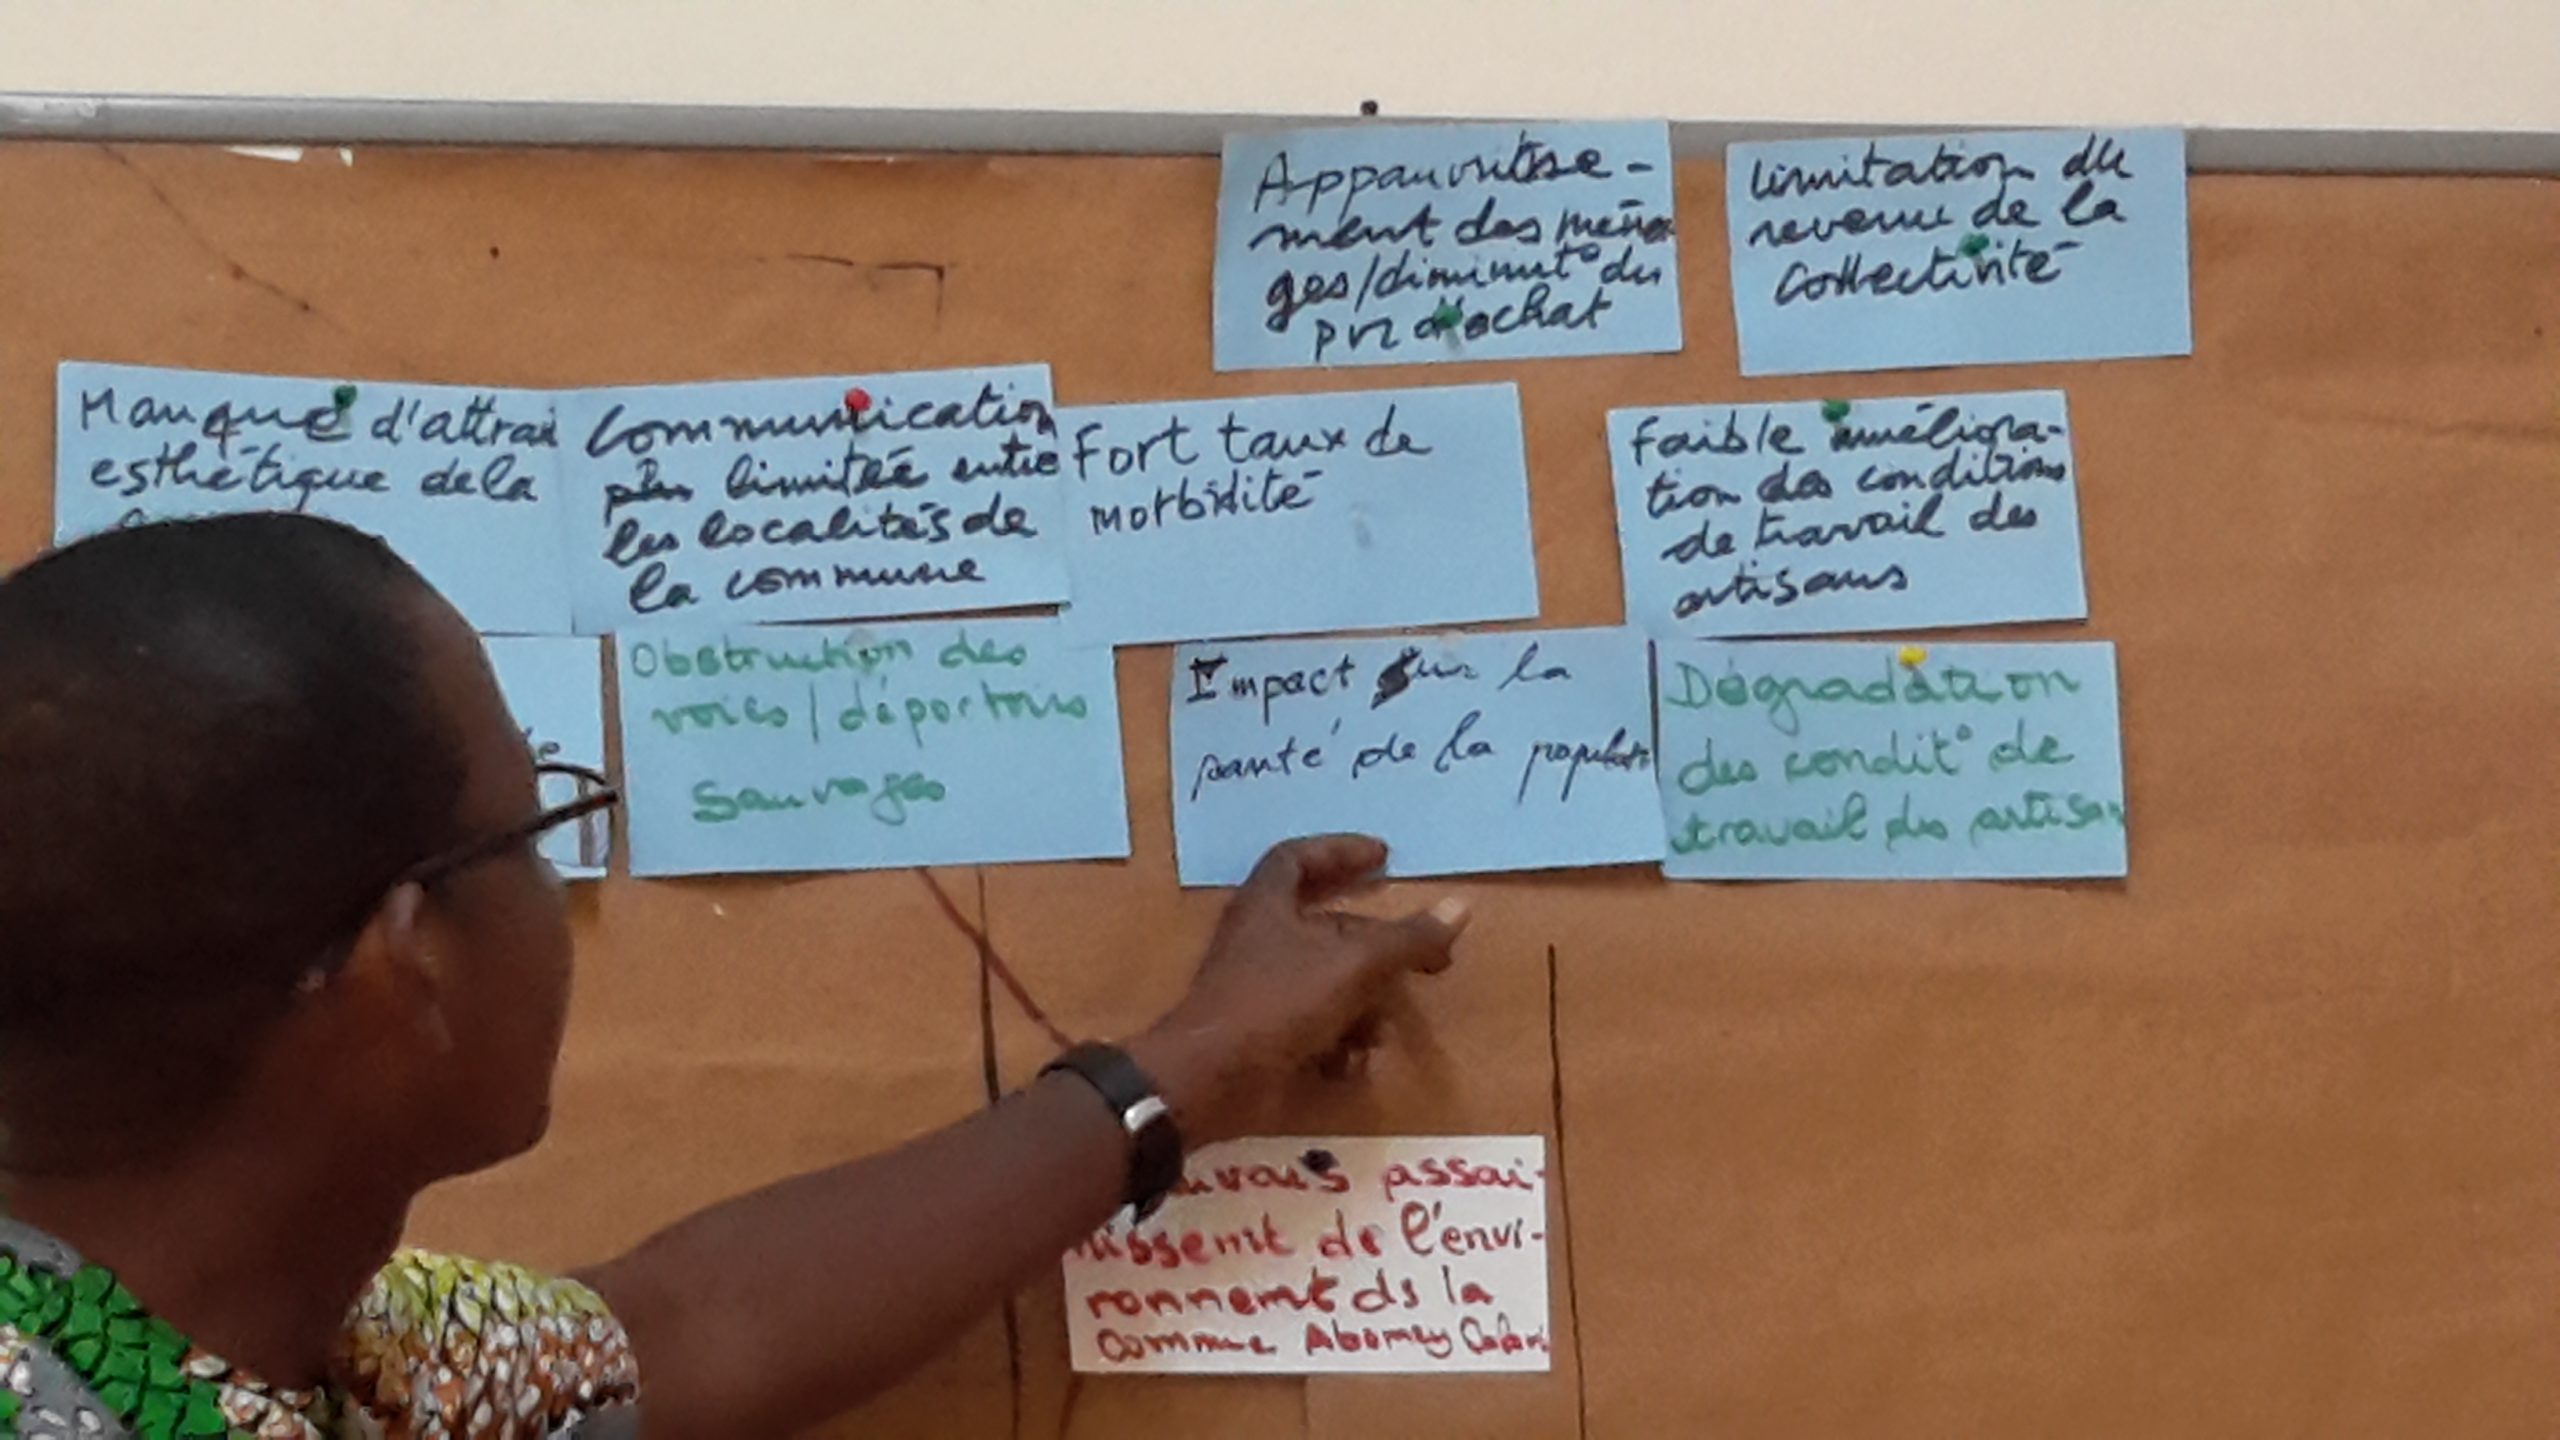 Appauvrisse-
ment des ména
ges/diminut° du
pvr d'achat
limitation du
revenu de la
collectivité
Manque d'attrai
esthétique de la
Communication
plus limitée entre
les localités de
la commune
Fort taux de
morbidité
Faible améliora-
tion des conditions
de travail des
artisans
Obstruction des
voies/déportoirs
Sauvages
Impact sur la
santé de la populati
Dégradation
des condit° de
travail des artisan
uvais assai-
nissemt de l'envi-
ronnemt ds la
Commune Abomey